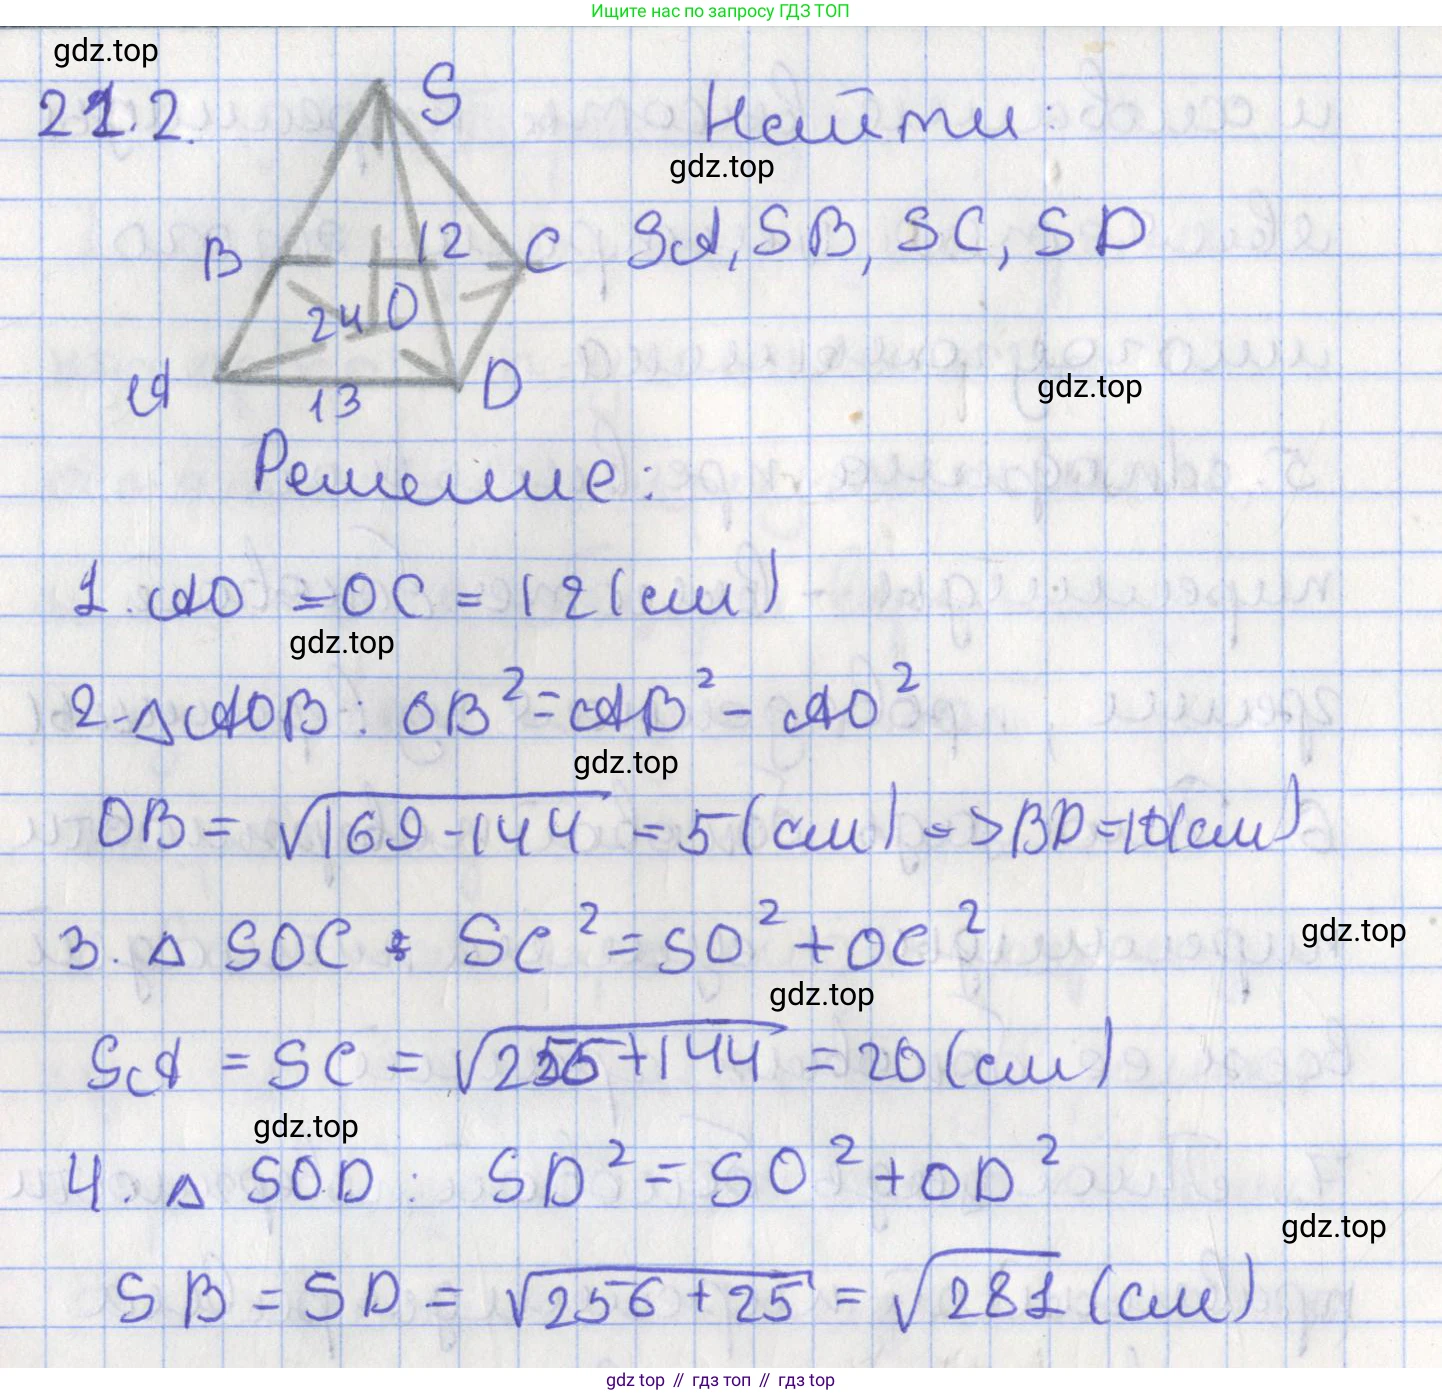 Ищите нас по запросу ГДЗ ТОП
gdz.top
21.2.
S
Найти:
gdz.top
B
12
C
SA, SB, SC, SD
24
O
A
13
D
gdz.top
Решение:
1. AO = OC = 12 (см)
gdz.top
2. △AOB: OB² = AB² - AO²
gdz.top
OB = √169-144 = 5 (см) => BD=10(см)
3. △ SOC : SC² = SO² + OC²
gdz.top
gdz.top
SA = SC = √256+144 = 20 (см)
gdz.top
4. △ SOD : SD² = SO² + OD²
gdz.top
SB = SD = √256 + 25 = √281 (см)
gdz top // гдз топ // гдз top